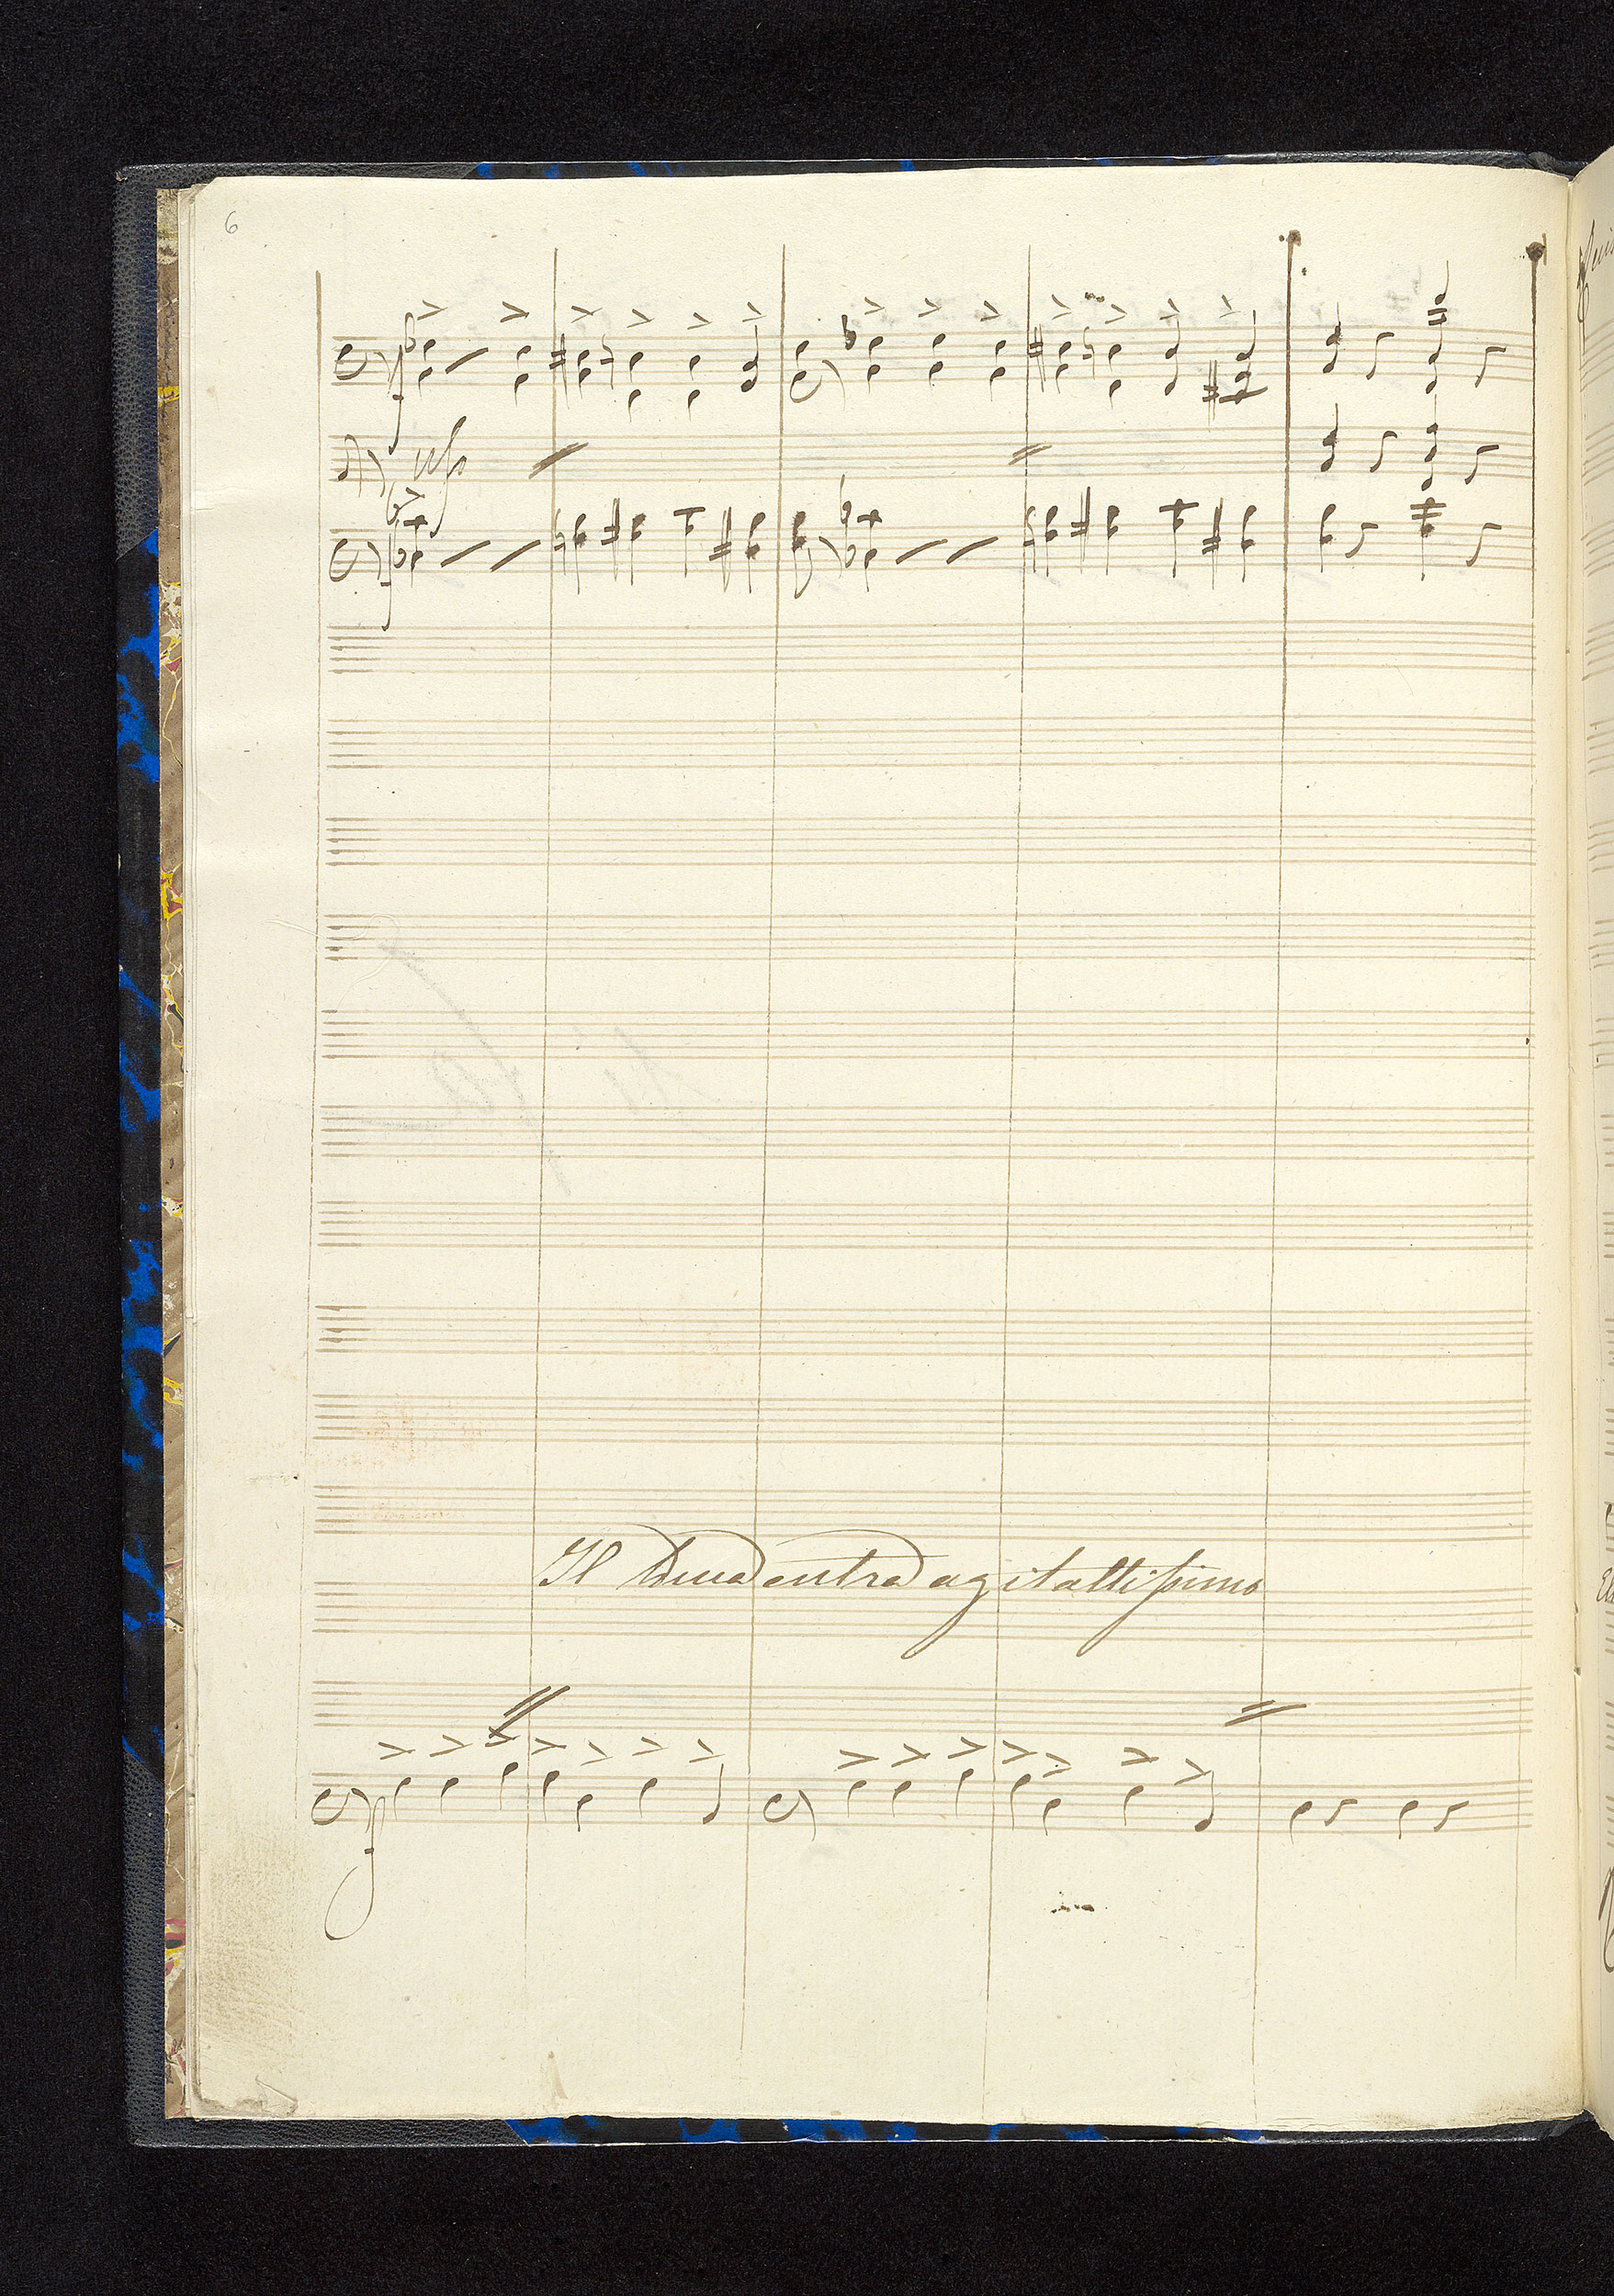 6
up
Il Duca entra agitattissimo